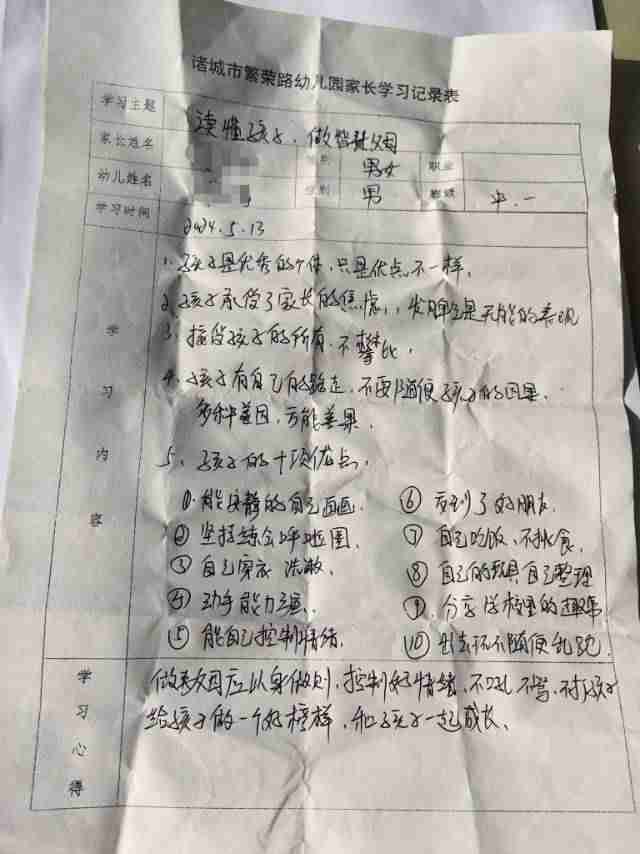 诸城市繁荣路幼儿园家长学习记录表
学习主题 读懂孩子、做智慧父母
家长姓名 性别 男女 职业
幼儿姓名 性别 男 班级 中.一
学习时间 2024.5.13
学习内容
1、孩子是优秀的个体,只是优点不一样,
2、孩子承受了家长的焦虑,发脾气是无能的表现
3、接受孩子的所有,不攀比,
4、孩子有自己的路走,不要随便孩子的因果.
多种善因,方能善果.
5、孩子的十项优点,
①能安静的自己画画.
②坚持练会呼啦圈.
③自己穿衣 洗漱.
④动手能力强.
⑤能自己控制情绪.
⑥交到了好朋友.
⑦自己吃饭、不挑食.
⑧自己的玩具自己整理
⑨分享学校里的趣事.
⑩出去玩不随便乱跑.
学习心得
做为父母应以身做则,控制好情绪,不吼 不骂、对孩子
给孩子做一个好榜样,和孩子一起成长、